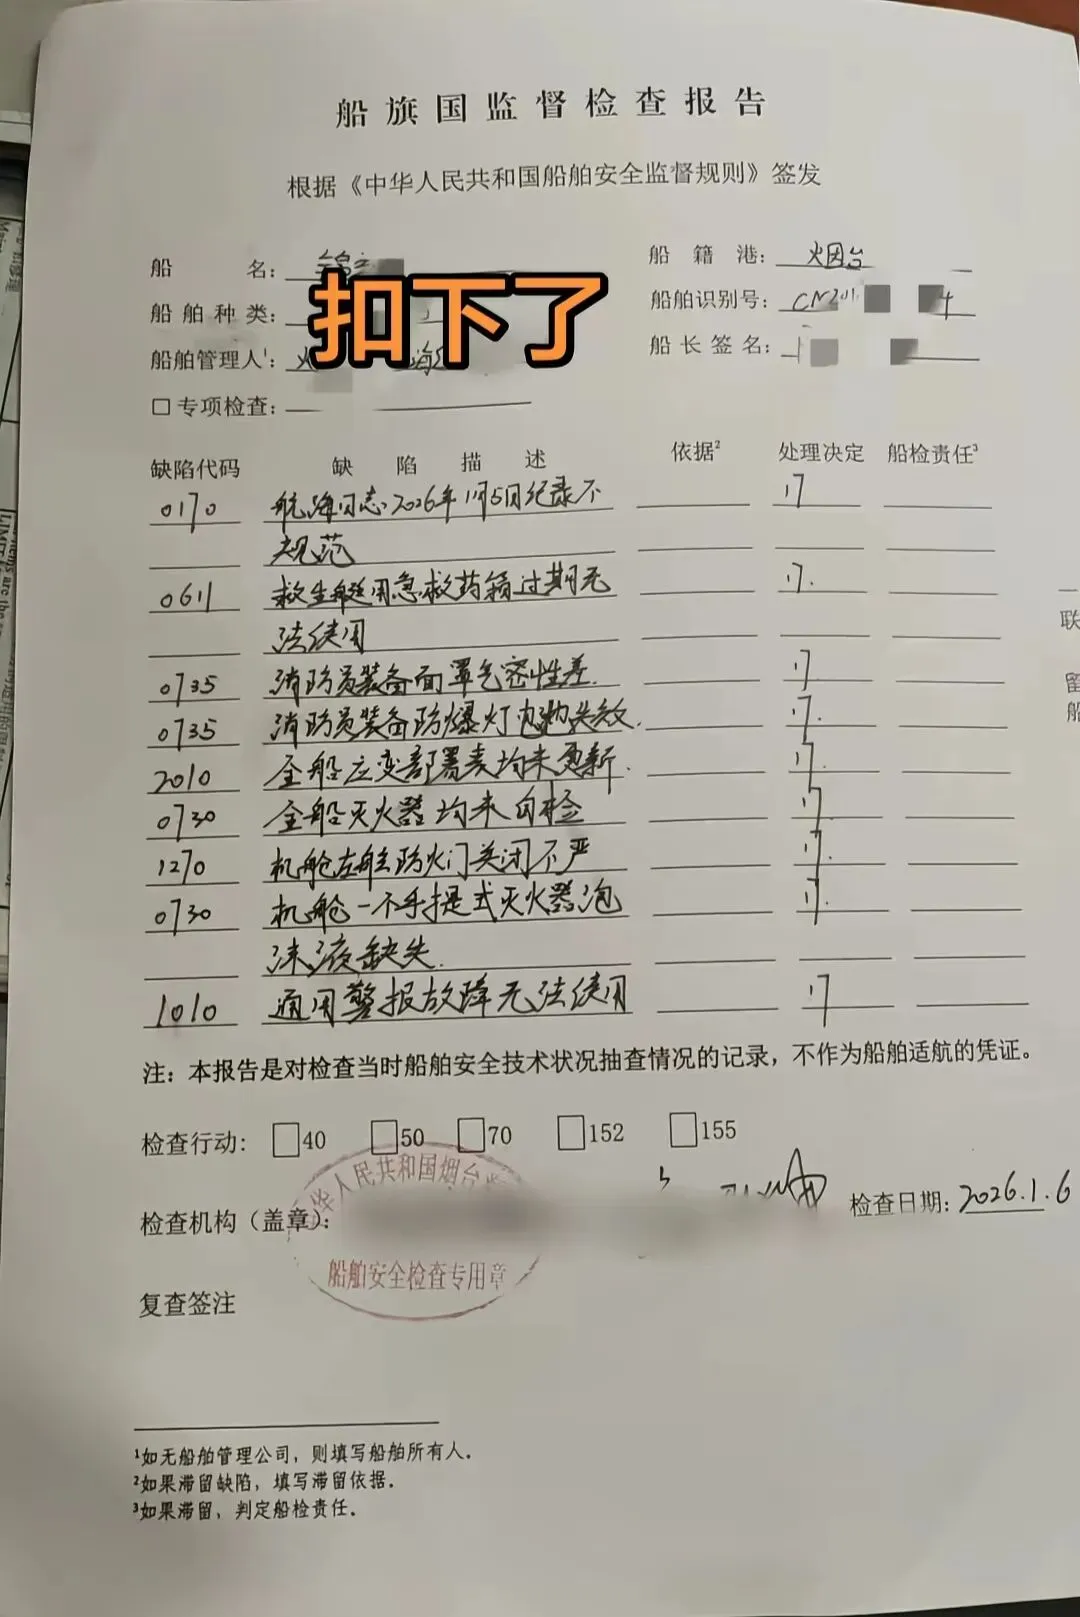 船旗国监督检查报告
根据《中华人民共和国船舶安全监督规则》签发
船 名：
船 籍 港： 烟台
扣下了
船舶种类：
船舶识别号： CN201 4
船舶管理人¹： 海
船长签名：
□ 专项检查：
缺陷代码 缺陷描述 依据² 处理决定 船检责任³
0170 航海日志2026年1月5日纪录不 17
规范
0611 救生艇用急救药箱过期无 17.
法使用
0735 消防员装备面罩气密性差. 17
0735 消防员装备防爆灯 失效. 17.
2010 全船应变部署表均未更新. 17.
0730 全船灭火器均未自检 17
1270 机舱左舷防火门关闭不严 17.
0730 机舱一个手提式灭火器泡 17.
沫液缺失.
1010 通用警报故障无法使用 17
注：本报告是对检查当时船舶安全技术状况抽查情况的记录，不作为船舶适航的凭证。
检查行动： □40 □50 □70 □152 □155
华人民共和国烟台
检查机构（盖章）：
检查日期：2026.1.6
船舶安全检查专用章
复查签注
¹如无船舶管理公司，则填写船舶所有人。
²如果滞留缺陷，填写滞留依据。
³如果滞留，判定船检责任。
联
留
船